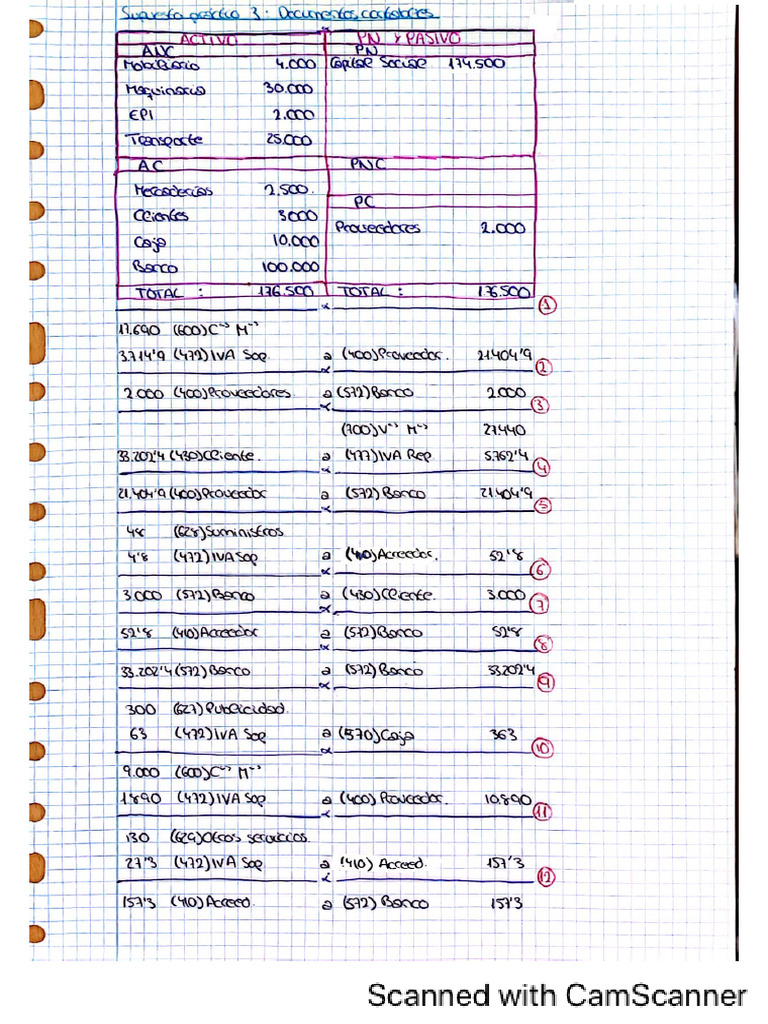 Supuesto práctico 3: Documentos contables
ACTIVO PN Y PASIVO
ANC PN
Mobiliario 4.000 Capital Social 174.500
Maquinaria 30.000
EPI 2.000
Transporte 25.000
AC PNC
Mercaderías 2.500.
Clientes 3000 PC
Caja 10.000 Proveedores 2.000
Banco 100.000
TOTAL: 176.500 TOTAL: 176.500
x 1
17.690 (600) C⁻⁻ˢ M⁻⁻ˢ
3.714'9 (472) IVA Sop a (400) Proveedor. 21.404'9
x 2
2.000 (400) Proveedores a (572) Banco 2.000
x 3
(700) V⁻⁻ˢ M⁻⁻ˢ 27.440
33.202'4 (430) Cliente. a (477) IVA Rep 5.762'4
x 4
21.404'9 (400) Proveedor a (572) Banco 21.404'9
x 5
48 (628) Suministros
4'8 (472) IVA Sop a (410) Acreedor. 52'8
x 6
3.000 (572) Banco a (430) Cliente. 3.000
x 7
52'8 (410) Acreedor a (572) Banco 52'8
x 8
33.202'4 (572) Banco a (572) Banco 33.202'4
x 9
300 (627) Publicidad.
63 (472) IVA Sop a (570) Caja 363
x 10
9.000 (600) C⁻⁻ˢ M⁻⁻ˢ
1890 (472) IVA Sop a (400) Proveedor. 10.890
x 11
130 (629) Otros servicios.
27'3 (472) IVA Sop a (410) Acreed. 157'3
x 12
157'3 (410) Acreed. a (572) Banco 157'3
Scanned with CamScanner